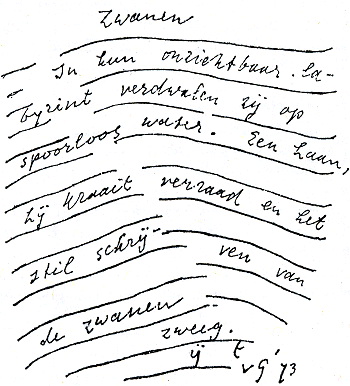 Zwanen
In hun onzichtbaar la-
byrint verdwalen zij op
spoorloos water. Een haan,
hij kraait verraad en het
stil schrij- ven van
de zwanen zweeg.
ij t
vG '73